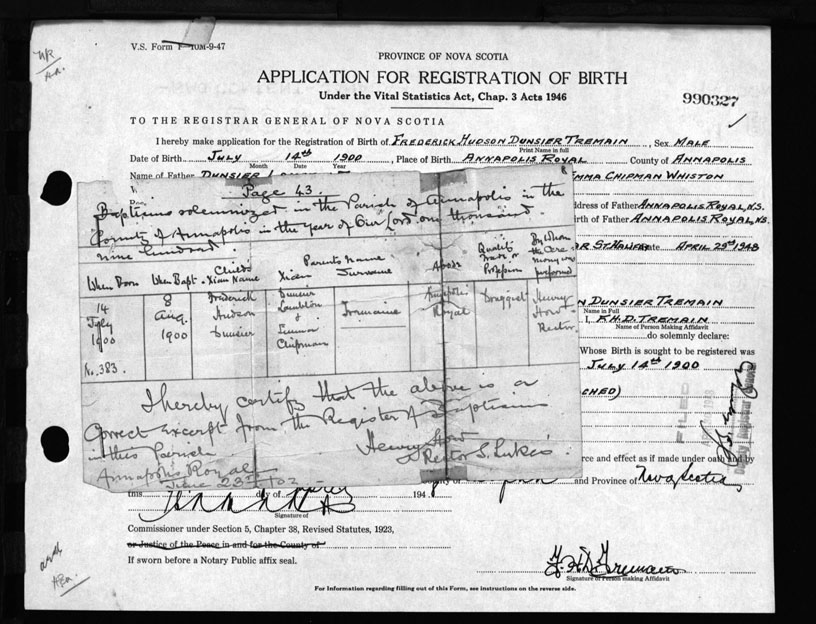 V.S. Form 1-10M-9-47
PROVINCE OF NOVA SCOTIA
APPLICATION FOR REGISTRATION OF BIRTH
Under the Vital Statistics Act, Chap. 3 Acts 1946
990327
TO THE REGISTRAR GENERAL OF NOVA SCOTIA
I hereby make application for the Registration of Birth of FREDERICK HUDSON DUNSIER TREMAIN, Sex MALE
Print Name in full
Date of Birth JULY 14th 1900, Place of Birth ANNAPOLIS ROYAL County of ANNAPOLIS
Month Date Year
Name of Father DUNSIER EMMA CHIPMAN WHISTON
Address of Father ANNAPOLIS ROYAL, N.S.
Birth of Father ANNAPOLIS ROYAL, N.S.
ST. HALIFAX Date APRIL 29th 1948
Page 43.
Baptisms solemnized in the Parish of Annapolis in the
County of Annapolis in the year of Our Lord one thousand
nine hundred.
When Born When Bapt. Child's Xian Name Parents Name Xian Surname Abode Quality Trade or Profession By Whom the Ceremony was performed
14 July 1900
8 Aug. 1900
Frederick Hudson Dunsier
Dunsier Lambton & Emma Chipman
Tremaine
Annapolis Royal
Druggist
Henry How Rector
No. 383.
I hereby certify that the above is a
Correct Excerpt from the Register of Baptisms
in this Parish
Henry How
Rector S. Lukes
Annapolis Royal
June 23rd /02
DUNSIER TREMAIN
Name in Full
I, F.H.D. TREMAIN
Name of Person Making Affidavit
do solemnly declare:
Whose Birth is sought to be registered was
JULY 14th 1900
CHED)
FILED
force and effect as if made under oath and by
and Province of Nova Scotia
this day of 194
Signature of
Commissioner under Section 5, Chapter 38, Revised Statutes, 1923,
or Justice of the Peace in and for the County of
If sworn before a Notary Public affix seal.
F.H.D. Tremain
Signature of Person making Affidavit
For Information regarding filling out of this Form, see instructions on the reverse side.